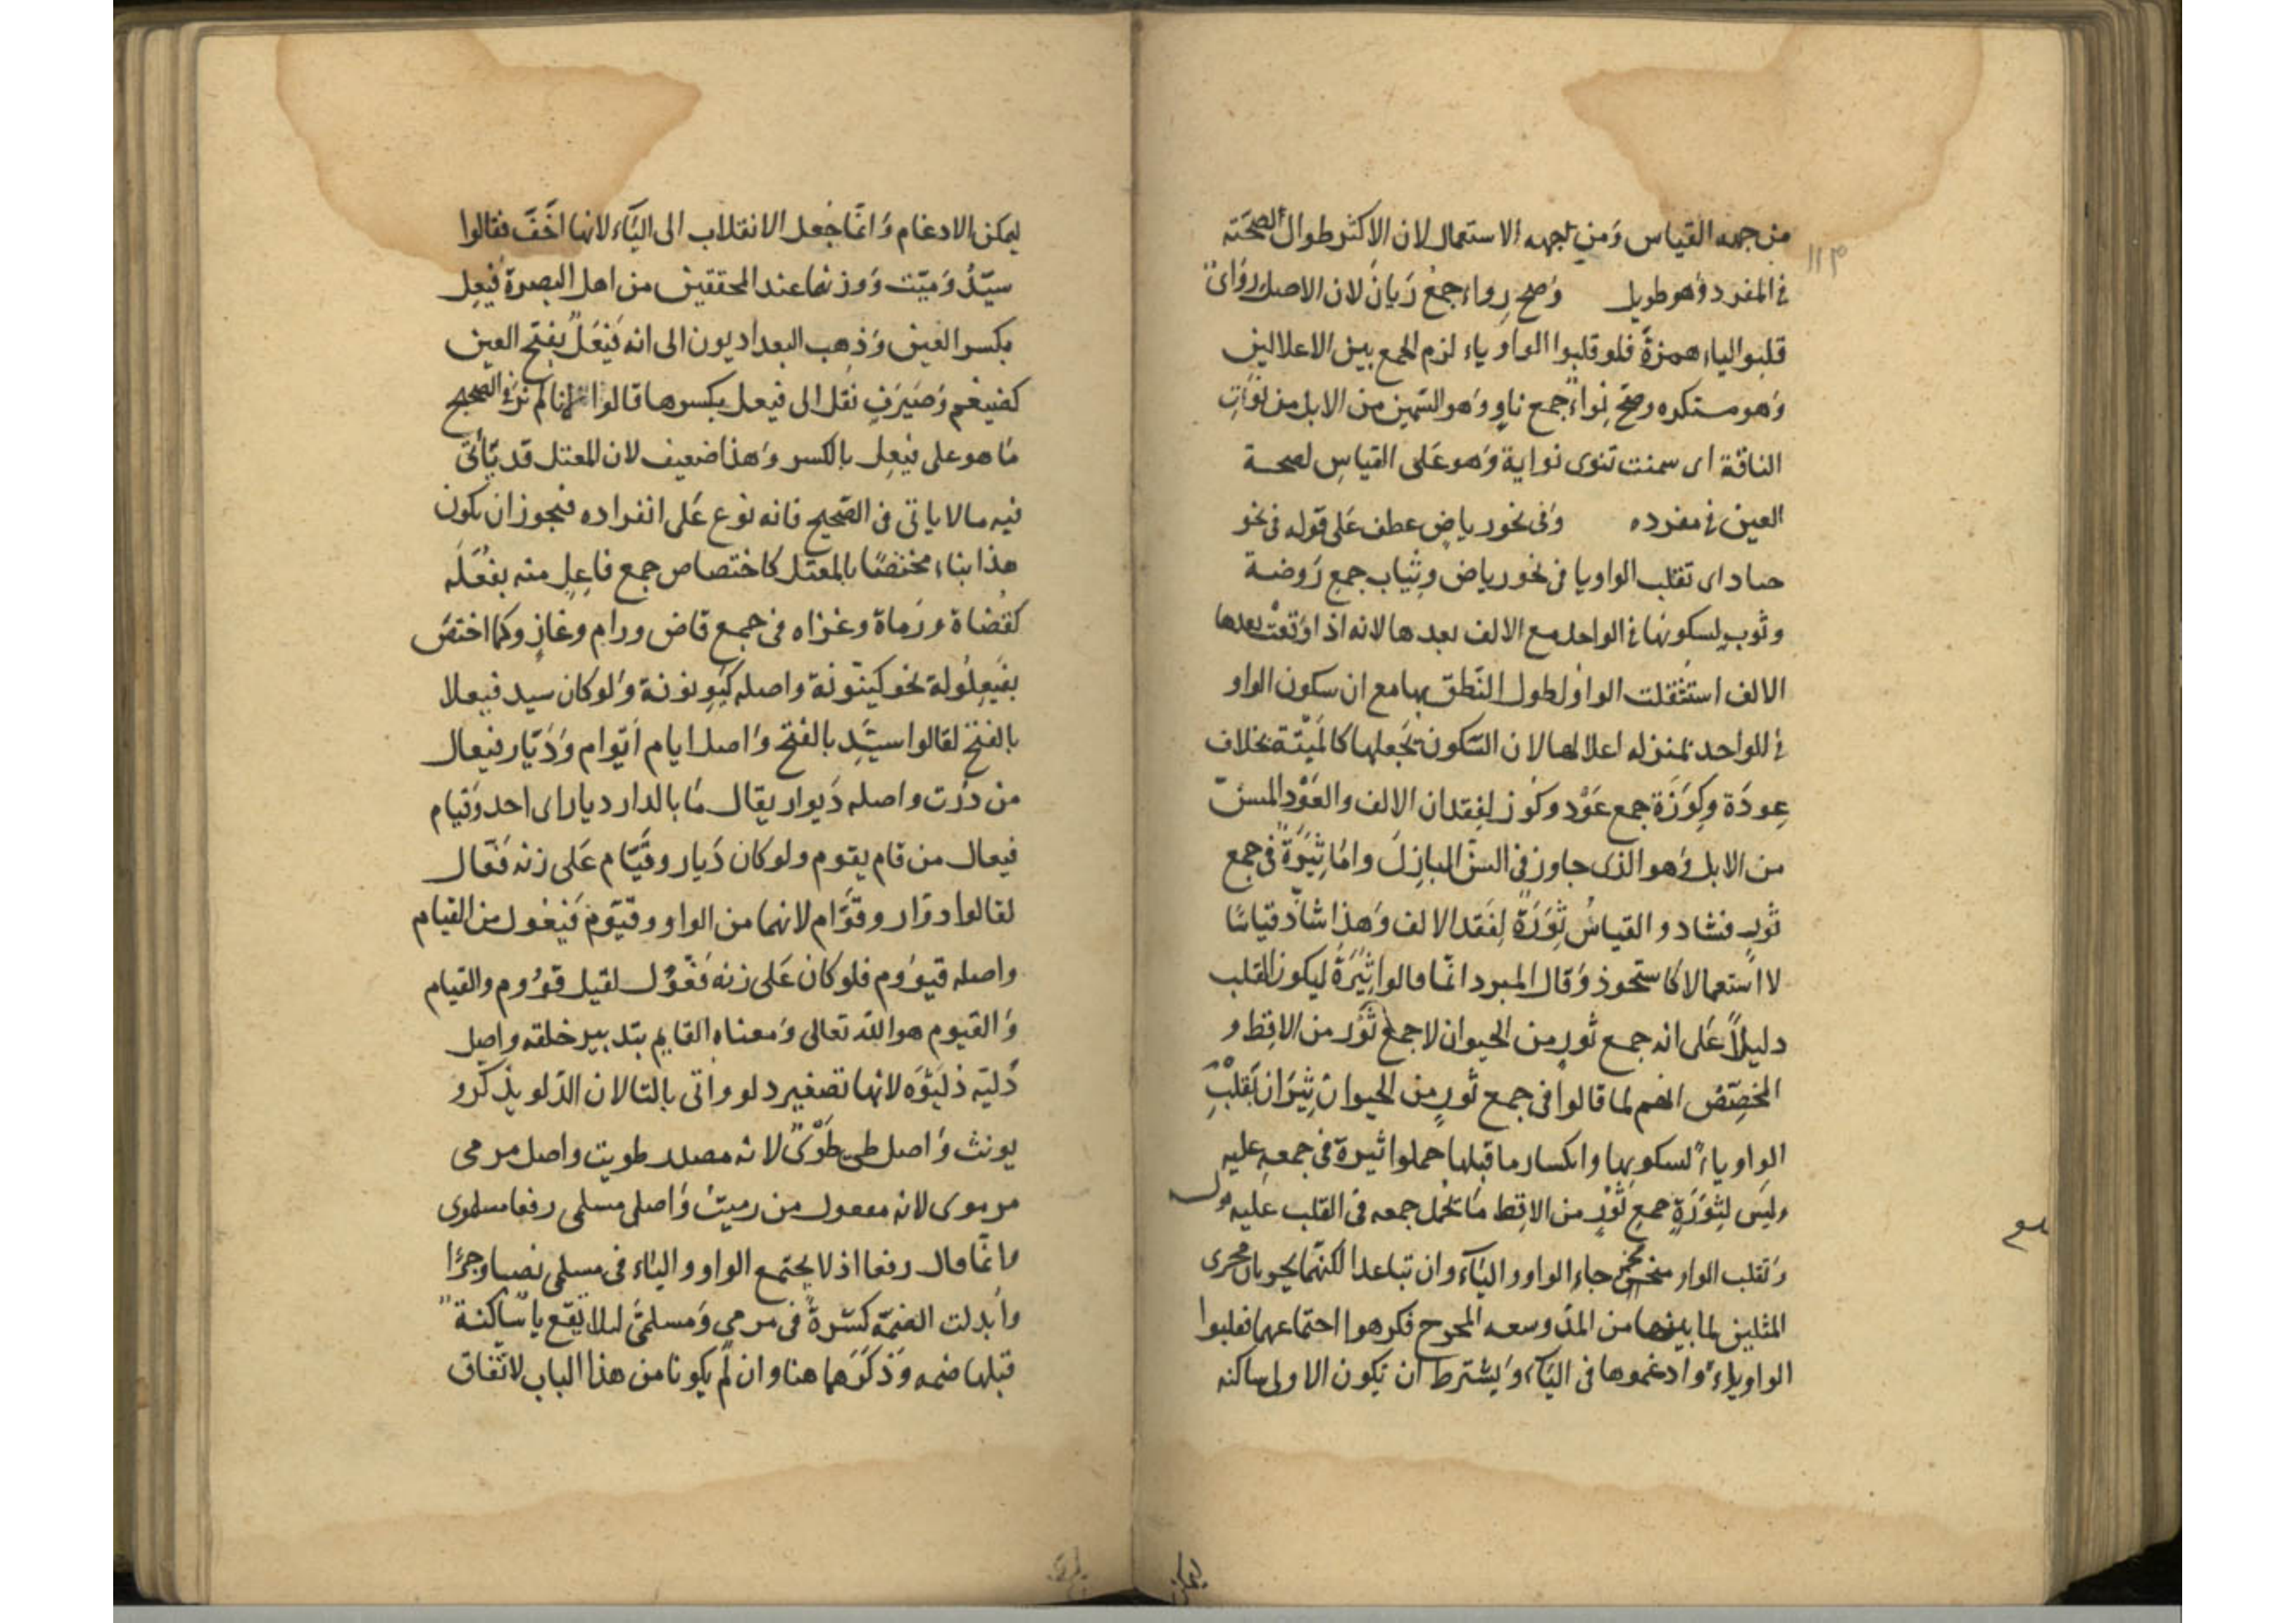 من جهه القياس وَمن جهه الاستعمال لان الاكثر طوال لصحّته
في المفرد وَهو طويل وَصح رِواء جمعُ رَيانَ لان الاصل رِوَايٌ
قلبوا الياء همزةً فلو قلبوا الواو ياء لزم الجمع بين الاعلالين
وَهو مستكره وصحّ نِواءٌ جمع ناوٍ وَهو السّمين من الابل من نوَتِ
الناقة اى سمنت تنوى نواية وَهو عَلى القياسِ لصحة
العين في مفرده وَفى نحو رياضٍ عطف عَلى قوله فى نحو
حياد اى تقلب الواو يا فى نحو رياض وثياب جمع رَوضة
وثوبٍ لسكونها في الواحد مع الالف بعدها لانه اذا وَقعتْ بعدها
الالف استُثقلت الواوُ لطول النّطق بها مع ان سكون الواو
في الواحد بمنزله اعلالها لان السّكون يجَعلها كالميّتة بخلاف
عِودَة وكِوَزَة جمع عَوْد وكوز لفِقدان الالف والعَوْد المسنّ
من الابل وَهو الذى جاوز في السنّ البازلَ وامّا ثِيَرَةٌ فى جمع
ثورٍ فشاد و القياسُ ثِوَرَةٌ لفَقد الالف وَهذا شاذّ قياسًا
لا استعمالا كاستحوذ وَقال المبرد انّما قالوا ثِيَرَةٌ ليكون القلب
دليلاً عَلى انه جمع ثورٍ من الحيوان لا جمع ثَوْر من الاقِط و
المخصِّصُ انهم لما قالوا فى جمع ثورٍ من الحيوان ثِيرَان بقلبِ
الواو ياءً لسكونها وانكسار ما قبلها حملوا ثيرة فى جمعهِ عليه
وليسَ لثِوَرَةٍ جمع ثَوْرٍ من الاقِط ما تحمل جمعه فى القلب عليه
وَتقلب الواو جاء الواو والياء وان تباعدا لكنّهما يجريان مجرى
المثلين لما بينهما من المدّ وسعه المخرج فكرهوا اجتماعهما فقلبوا
الواو ياءً وادغموها فى الياء وَيشترط ان تكون الاولى ساكنه
ليمكن الادغام وَانّما جُعل الانقلاب الى اليَآء لانها اخَفّ فقالوا
سيّدٌ وَميّت وَوزنهما عند المحققين من اهل البصرة فَيعِل
بكسر العين وَذهب البعداديون الى انه فَيْعَلٌ بفتح العين
كضيغم وَصَيَرَفٍ نقل الى فيعل بكسرها قالوا لانا لم نرَ في الصحيح
مَا هو على فيعِل بالكسر وَهذا ضعيف لان المعتل قد يَأتى
فيه ما لا ياتى فى الصّحيح فانه نوع عَلى انفراده فيجوز ان يكون
هذا بناء مختصًا بالمعتل كاختصاص جمع فاعِلٍ منه بفُعَلَه
كقُضاة ورُماة وغزاه فى جمع قاض ورام وغازٍ وكما اختصّ
بفَيعِلُولة نحو كينّونة واصله كيوِنونة وَلو كان سيد فيعلا
بالفتح لقالوا سيّد بالفتح وَاصل ايام اَيْوام وَدَيّار فيعال
من دُرت واصله دَيوار يقال مَا بالدار ديار اى احد وَقيام
فيعال من قام يقوم ولو كان دَيار وقيّام عَلى زنه فَعّال
لقالوا دوّار وقوّام لانهما من الواو وقيّوم فَيْعُول من القيام
واصله قيوُوم فلو كان عَلى زنه فَعّوُل لقيل قوّوم والقيام
وَالقيوم هو الله تعالى وَمعناه القايم بتدبير خلقه واصل
دُليّه دُلَيْوَه لانها تصغير دلو وأتى بالتا لان الدّلو يذكّر و
يونث وَاصل طىّ طَوْىٌ لانه مصدر طويت واصل مرمى
مرموى لانه مفعول من رميتُ وَاصلى مسلمى رفعا مسلموى
وانّما قال رفعا اذ لا يجتمع الواو والياء فى مسلمى نصبا وجرًّا
وابدلت الضمّة كسْرةً فى مرمي وَمسلمىَّ لىلا يقع يا ساكنة
قبلها ضمه وَذكَرَهما هنا وان لم يكونا من هذا الباب لاتّفاق